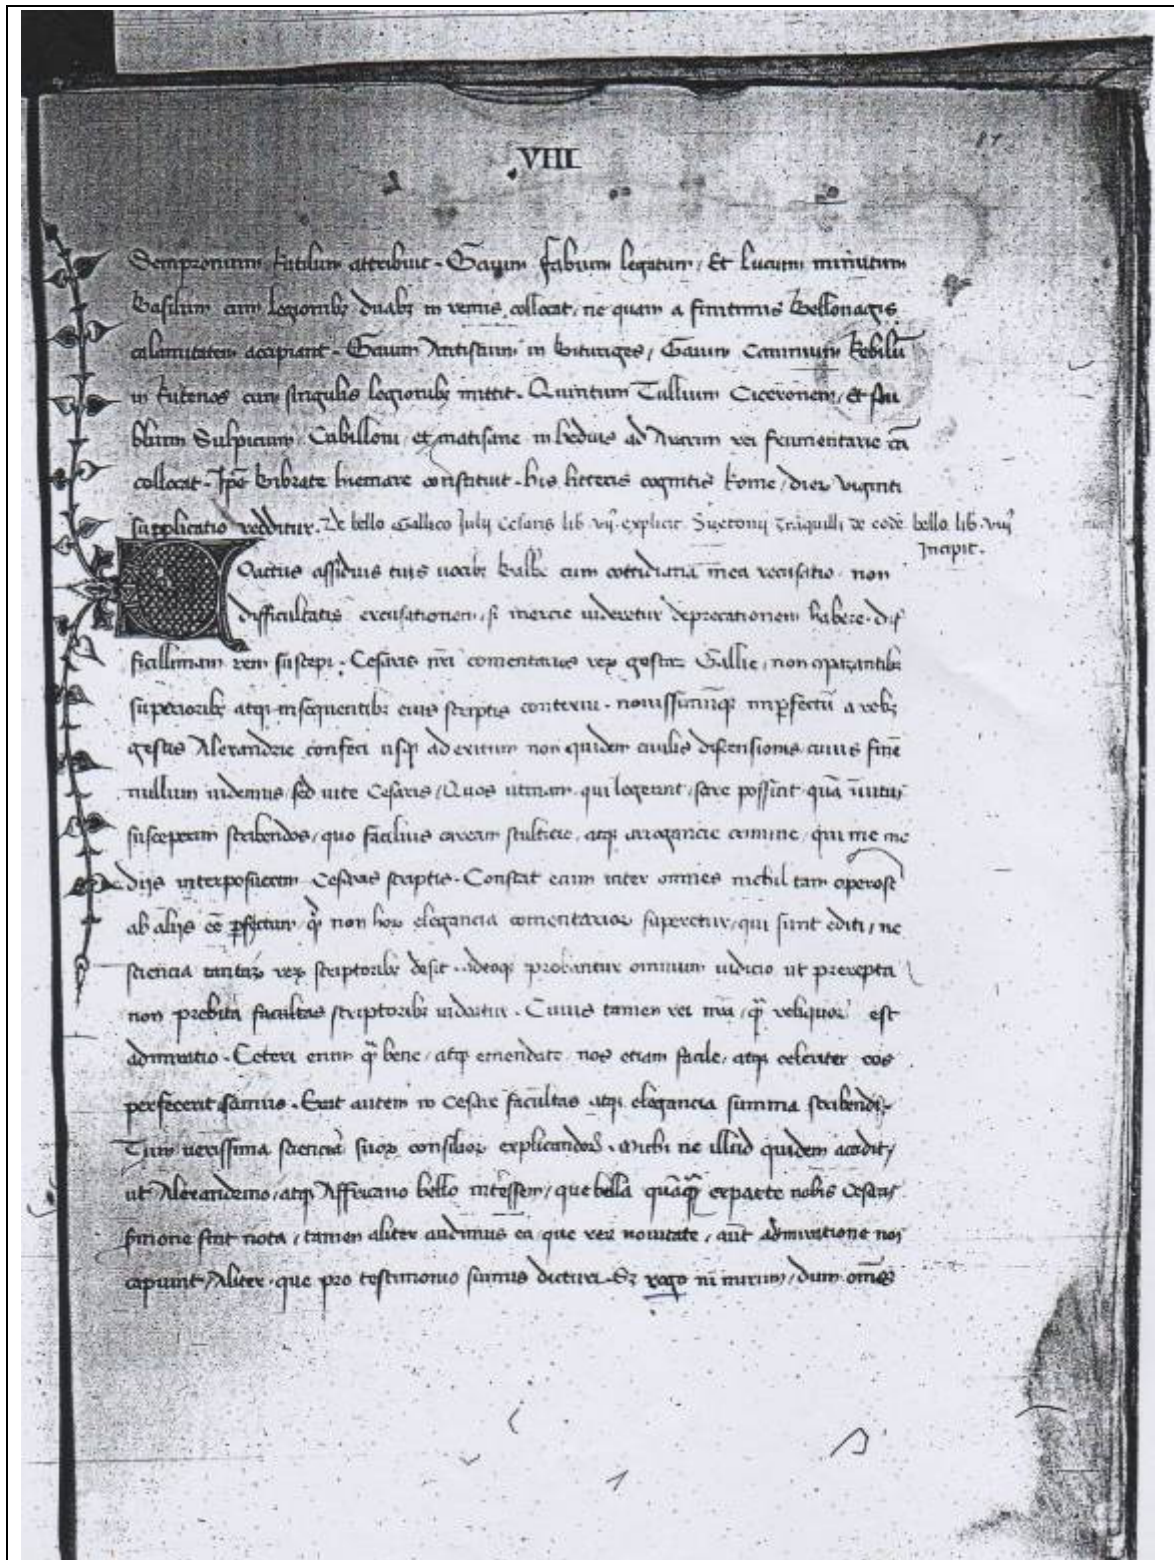 87
.VIII.
Sempronium Rutilum attribuit. Gaium fabium legatum, Et Lucium minutum
Basilum cum legionibꝫ duabꝫ in remis collocat, ne quam a finitimis Bellouagis
calamitatem accipiant. Gaium Antistium in bituriges, Gaium Caninium Rebilū
in Rutenos cum singulis legionibꝫ mittit. Quintum Tullium Ciceronem, et Pu
blium Sulpicium, Cabilloni, et matisane in heduis ad Ararim rei frumentarie cā
collocat. Ipē bibrate hiemare constituit. his litteris cognitis Rome, dierꝫ viginti
supplicatio redditur. De bello Gallico Julij Cesaris lib. vijꝰ explicit. Suetonij trāquilli de eodē bello lib. viijꝰ
Incipit.
Coactus assiduis tuis uocibꝫ balbe cum cottidiana mea recusatio. non
difficultatis excusationem, sꝫ inercie uideretur deprecationem habere. dif
ficillimam rem suscepi. Cesaris nr̄i comentarios reꝝ gestaꝝ Gallie, non comparantibꝫ
superioribꝫ atqꝫ insequentibꝫ eius scriptis contexui. nouissimūqꝫ imꝑfectū a rebꝫ
gestis Alexandrie confeci usqꝫ ad exitum non quidem ciuilis discensionis, cuius finē
nullum uidemus, sed uite Cesaris, Quos utinam qui legerint, scire possint, quā īuitus
susceperim scribendos, quo facilius caream stulticie, atqꝫ arrogancie crimine, qui me me
diis interposuerim Cesaris scriptis. Constat enim inter omnes nichil tam operose
ab alijs eē ꝑfectum, qd̄ non hoꝝ elegancia comentarioꝝ superetur, qui sunt editi, ne
sciencia tantaꝝ reꝝ scriptoribꝫ desit. adeoqꝫ probantur omnium iudicio ut prerepta
non prebita facultas scriptoribꝫ uideatur. Cuius tamen rei mīa, qꝫ reliquoꝝ est
admiratio. Ceteri enim qꝫ bene, atqꝫ emendate nos etiam facile, atqꝫ celeriter eos
perfecerit scimus. Erat autem in Cesare facultas atqꝫ elegancia summa scribendi,
Tum uerissima sciencia suoꝝ consilioꝝ explicandoꝝ. Michi ne illud quidem accidit,
ut Alexandrino, atqꝫ Affricano bello intēssem, que bella quāqꝫ ex parte nobis Cesaris
ẜmone sint nota, tamen aliter audimus ea, que reꝝ nouitate, aut admiratione nos
capiunt, Aliter, que pro testimonio sumus dicturi. Sꝫ rogo ni mirum, dum omēs